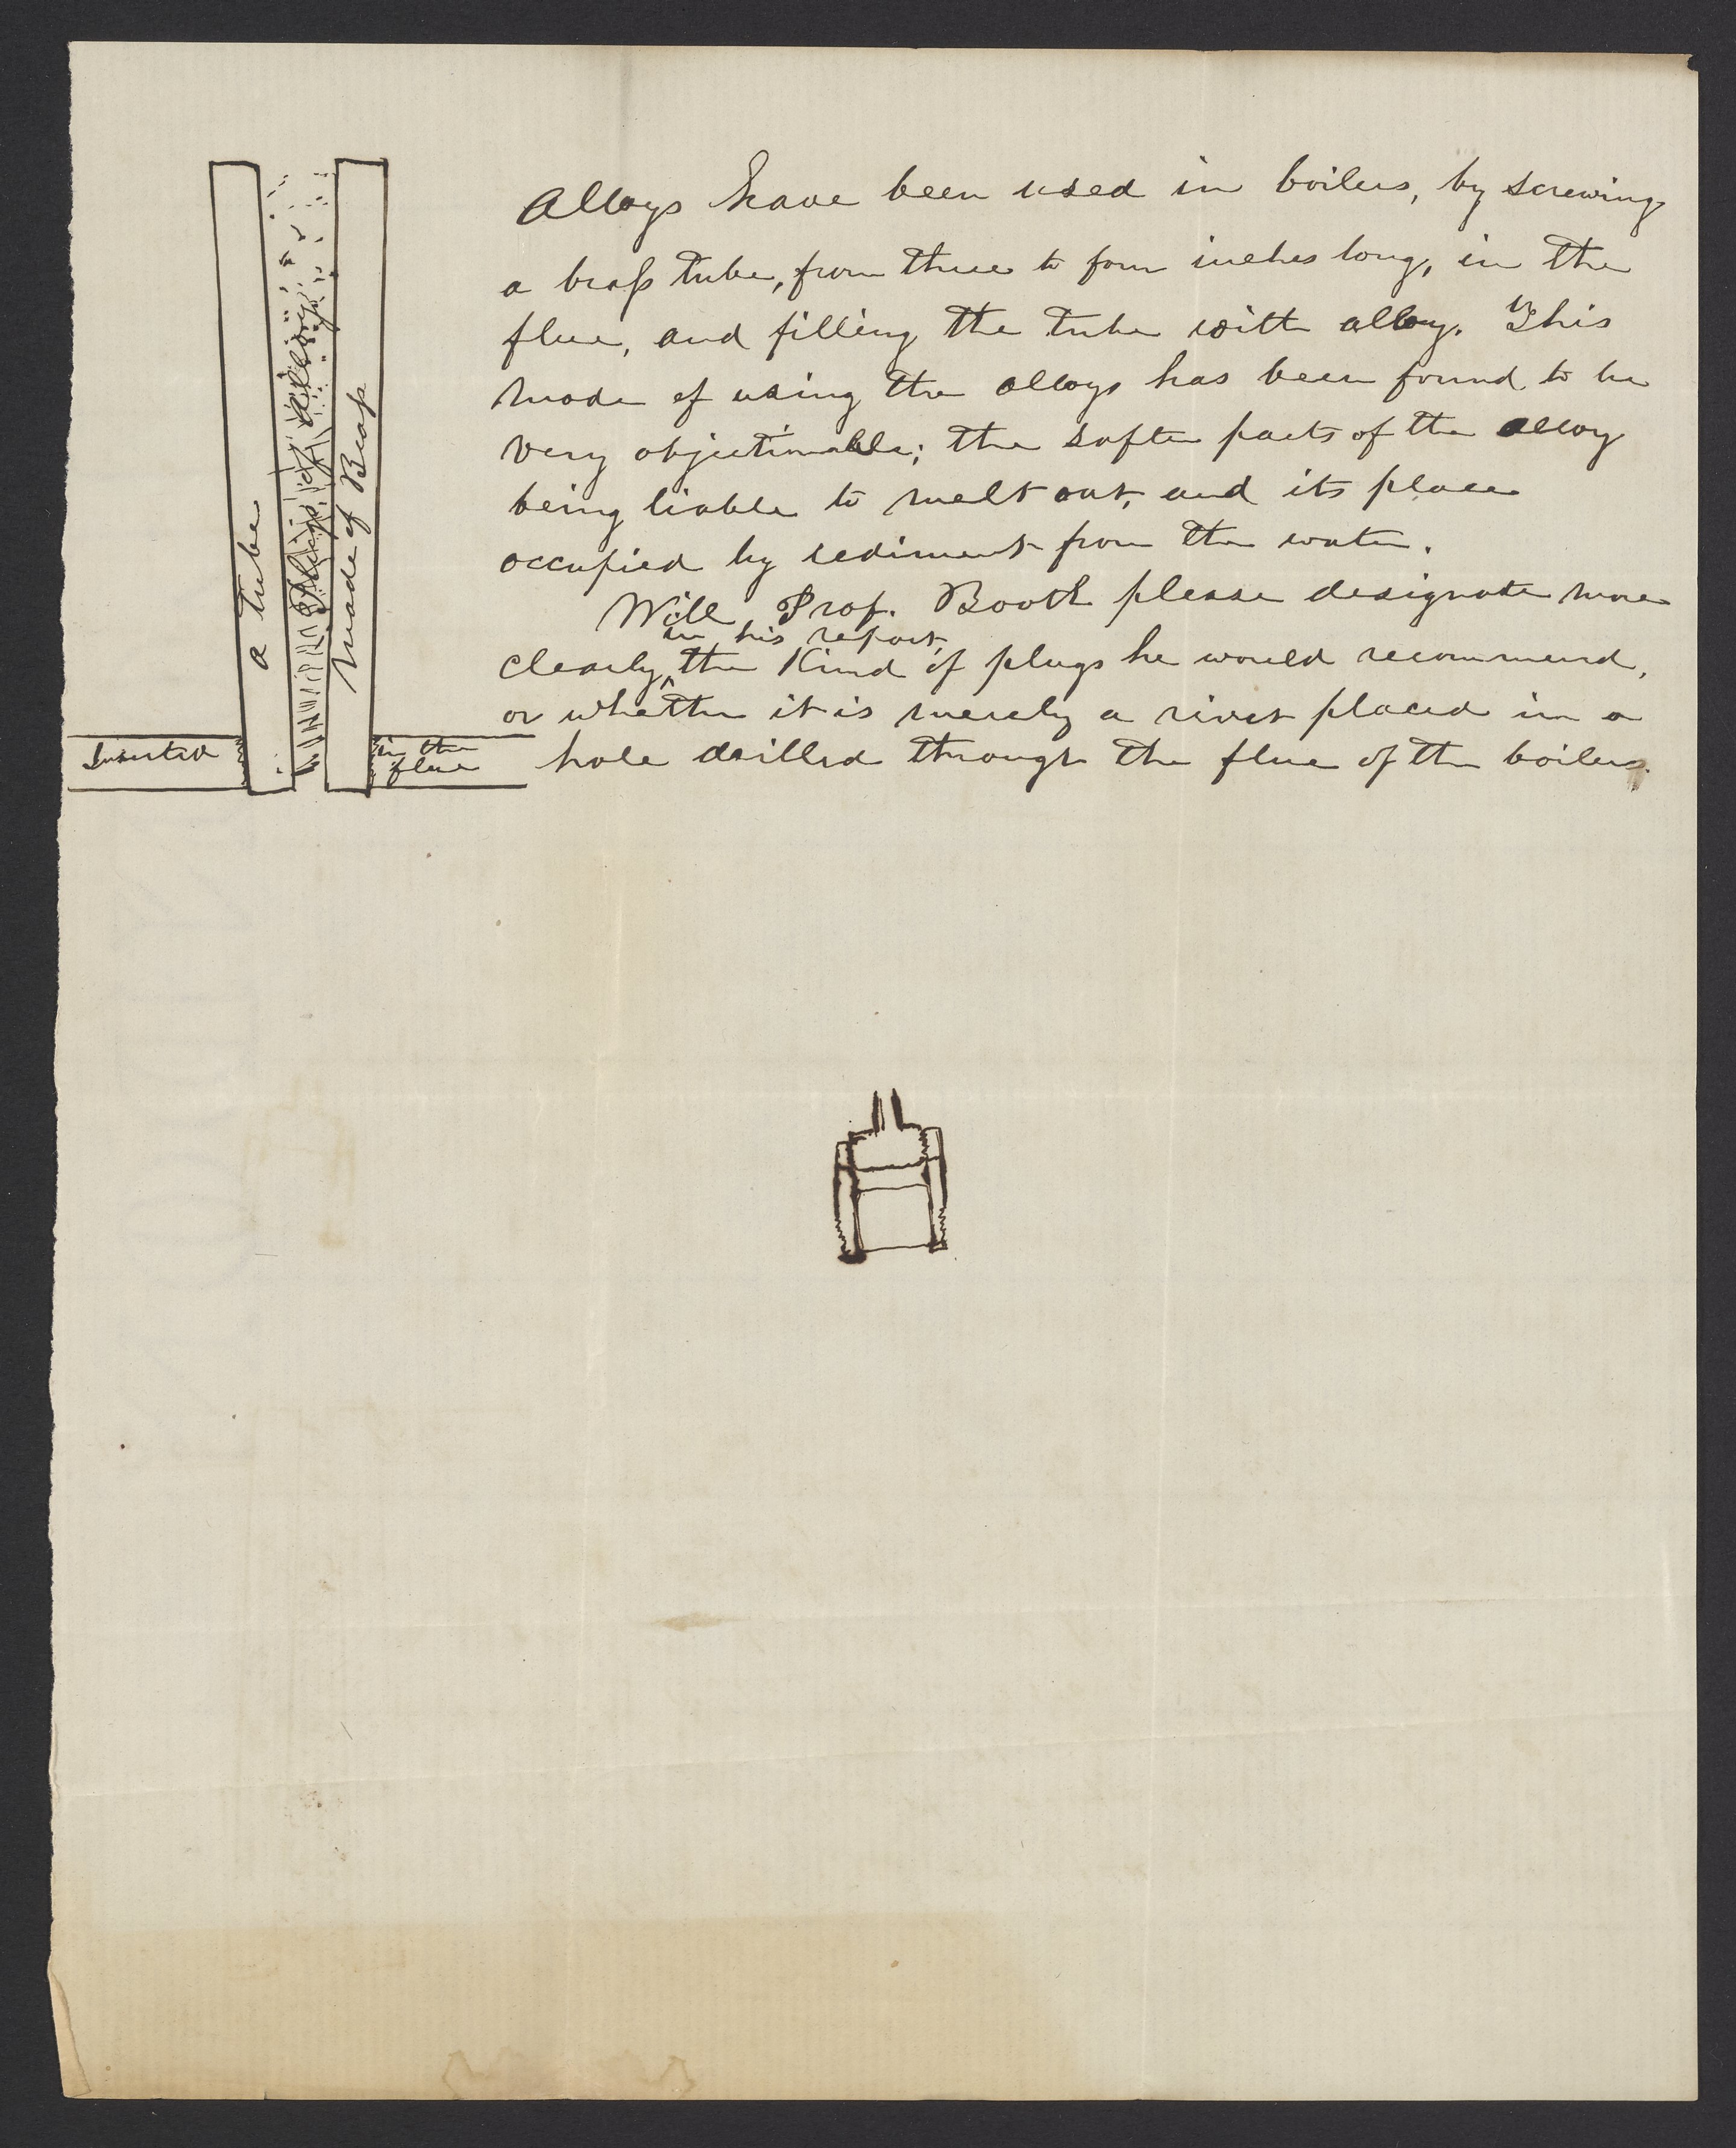 Alloys have been used in boilers, by screwing
a braſs tube, from three to four inches long, in the
flue, and filling the tube with alloy. This
mode of using the alloys has been found to be
very objectionable; the softer parts of the alloy
being liable to melt out, and its place
occupied by sediment from the water.
Will Prof. Booth please designate more
in his report,
clearly, the Kind of plugs he would recommend,
or whether it is merely a rivet placed in a
hole drilled through the flue of the boilers.
a tube
Plugs of Alloy
Made of Braſs
Inserted
in the
flue